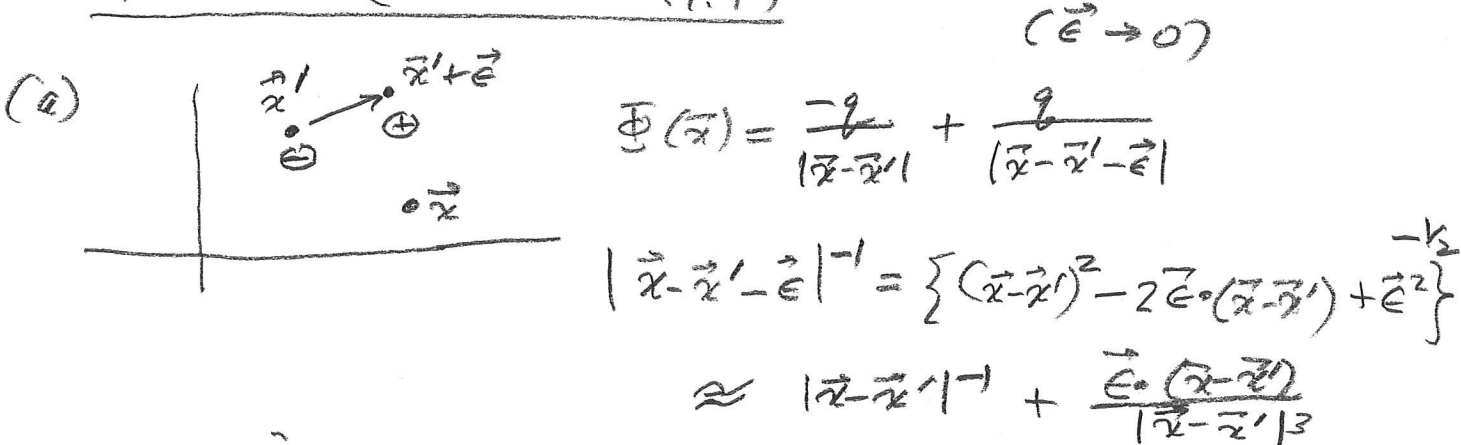 (a)
(ε⃗ → 0)
x⃗'
x⃗'+ε⃗
⊖
⊕
x⃗
Φ(x⃗) = -q/|x⃗-x⃗'| + q/|x⃗-x⃗'-ε⃗|
|x⃗-x⃗'-ε⃗|^{-1} = {(x⃗-x⃗')^2 - 2ε⃗·(x⃗-x⃗') + ε⃗^2}^{-1/2}
≈ |x⃗-x⃗'|^{-1} + ε⃗·(x⃗-x⃗')/|x⃗-x⃗'|^3